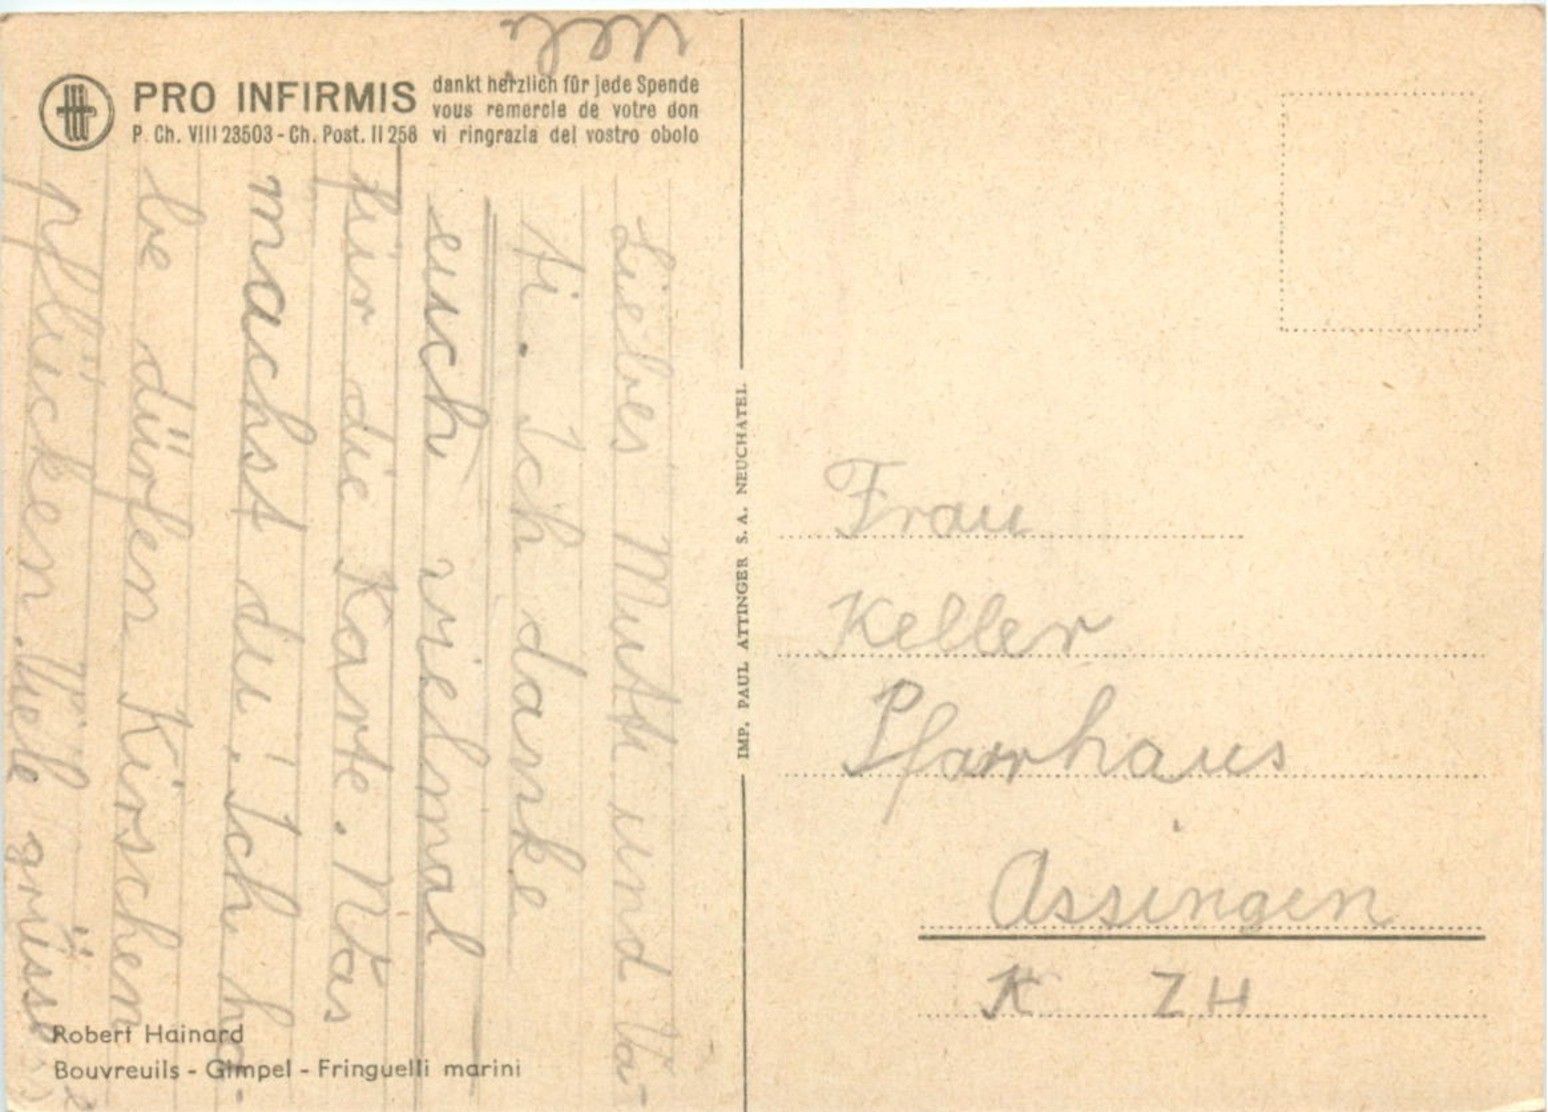 PRO INFIRMIS
P. Ch. VIII 23503 - Ch. Post. II 258
dankt herzlich für jede Spende
vous remercie de votre don
vi ringrazia del vostro obolo
Liebes Mutti und Va-
ti. Ich danke
euch vielmal
für die Karte. Was
machst du? Ich ha-
be dürfen Kirschen
pflücken. Viele grüsse
Ueli
Robert Hainard
Bouvreuils - Gimpel - Fringuelli marini
IMP. PAUL ATTINGER S. A. NEUCHATEL
Frau
Keller
Pfarrhaus
Ossingen
K ZH